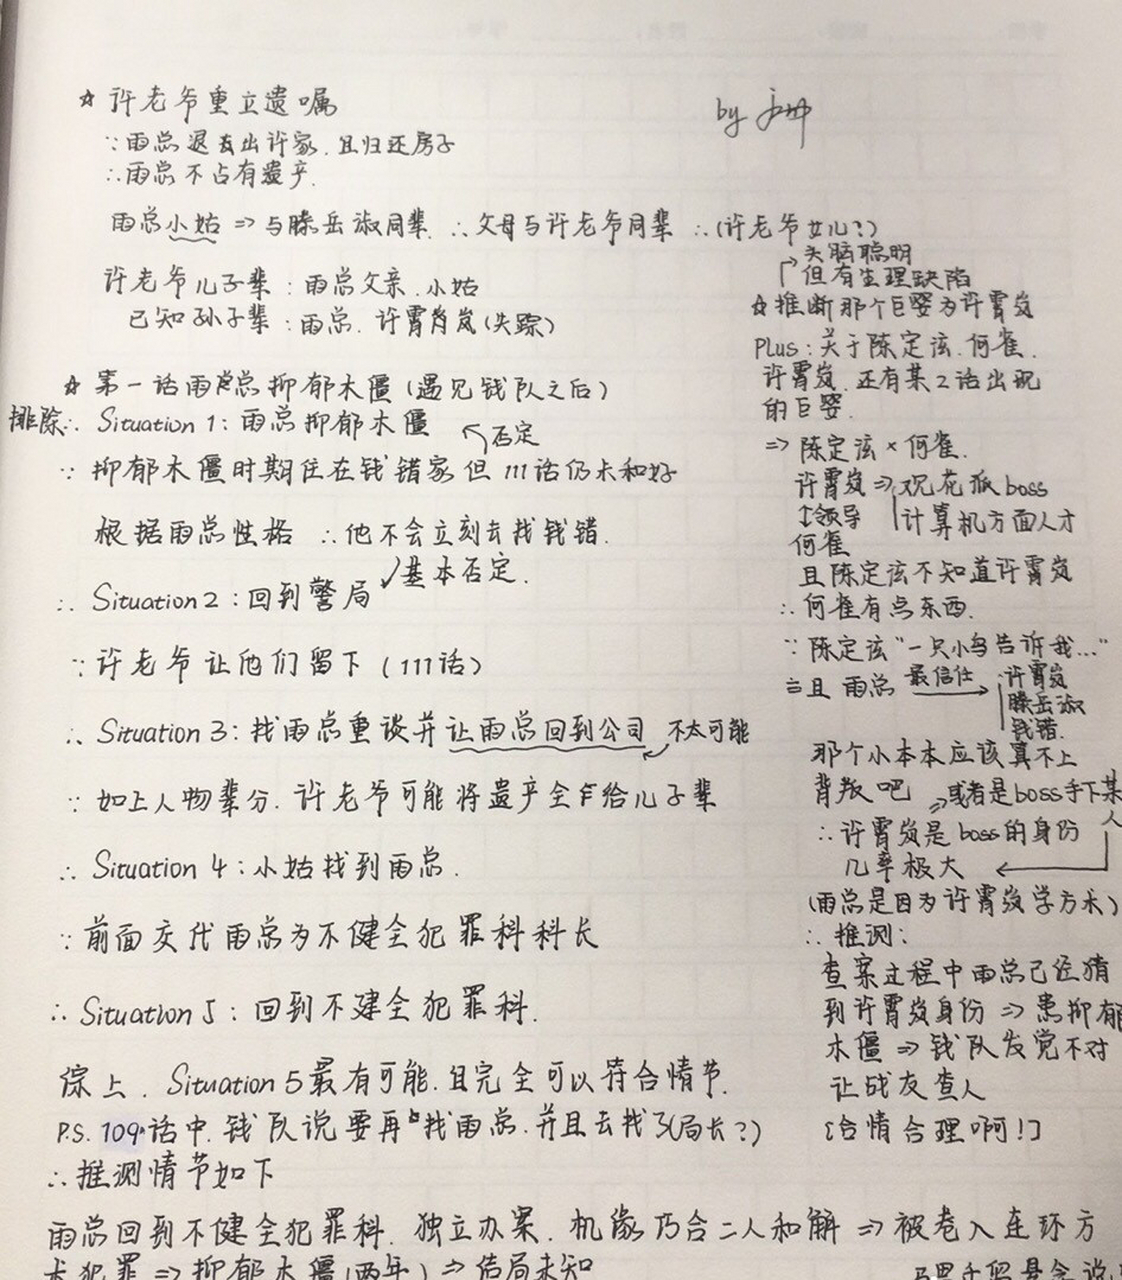 ☆ 许老爷重立遗嘱
by
∵雨总退出许家.且归还房子
∴雨总不占有遗产.
雨总小姑 ⇒ 与滕岳淑同辈. ∴父母与许老爷同辈 ∴(许老爷女儿?)
许老爷儿子辈:雨总父亲.小姑
已知孙子辈:雨总.许霄岚(失踪)
☆ 第一话雨总抑郁木僵(遇见钱队之后)
排除∴ Situation 1:雨总抑郁木僵
否定
∵ 抑郁木僵时期住在钱错家但111话仍未和好
根据雨总性格 ∴他不会立刻去找钱错.
基本否定.
∴ Situation 2:回到警局
∵许老爷让他们留下(111话)
∴ Situation 3:找雨总重谈并让雨总回到公司 不太可能
∵ 如上人物辈分.许老爷可能将遗产全给儿子辈
∴ Situation 4:小姑找到雨总.
∵前面交代雨总为不健全犯罪科科长
∴ Situation 5:回到不建全犯罪科.
综上.Situation 5最有可能.且完全可以符合情节.
P.S. 109话中.钱队说要再找雨总.并且去找了(局长?)
∴推测情节如下
雨总回到不健全犯罪科.独立办案.机缘巧合二人和解 ⇒ 被卷入连环方
术犯罪 ⇒ 抑郁木僵(两年) ⇒ 结局未知
头脑聪明
但有生理缺陷
☆推断那个巨婴为许霄岚
Plus:关于陈定泫.何雀.
许霄岚.还有某2话出现
的巨婴.
⇒ 陈定泫×何雀.
许霄岚⇒观花狐boss
↕领导 计算机方面人才
何雀
且陈定泫不知道许霄岚
∴何雀有点东西.
∵陈定泫"一只小鸟告诉我..."
且 雨总 最信任 → 许霄岚
滕岳淑
钱错.
那个小本本应该算不上
背叛吧 ⇒或者是boss手下某
人
∴许霄岚是boss的身份
几率极大
(雨总是因为许霄岚学方术)
∴推测:
查案过程中雨总已经猜
到许霄岚身份 ⇒ 患抑郁
木僵 ⇒ 钱队发觉不对
让战友查人
[合情合理啊!]